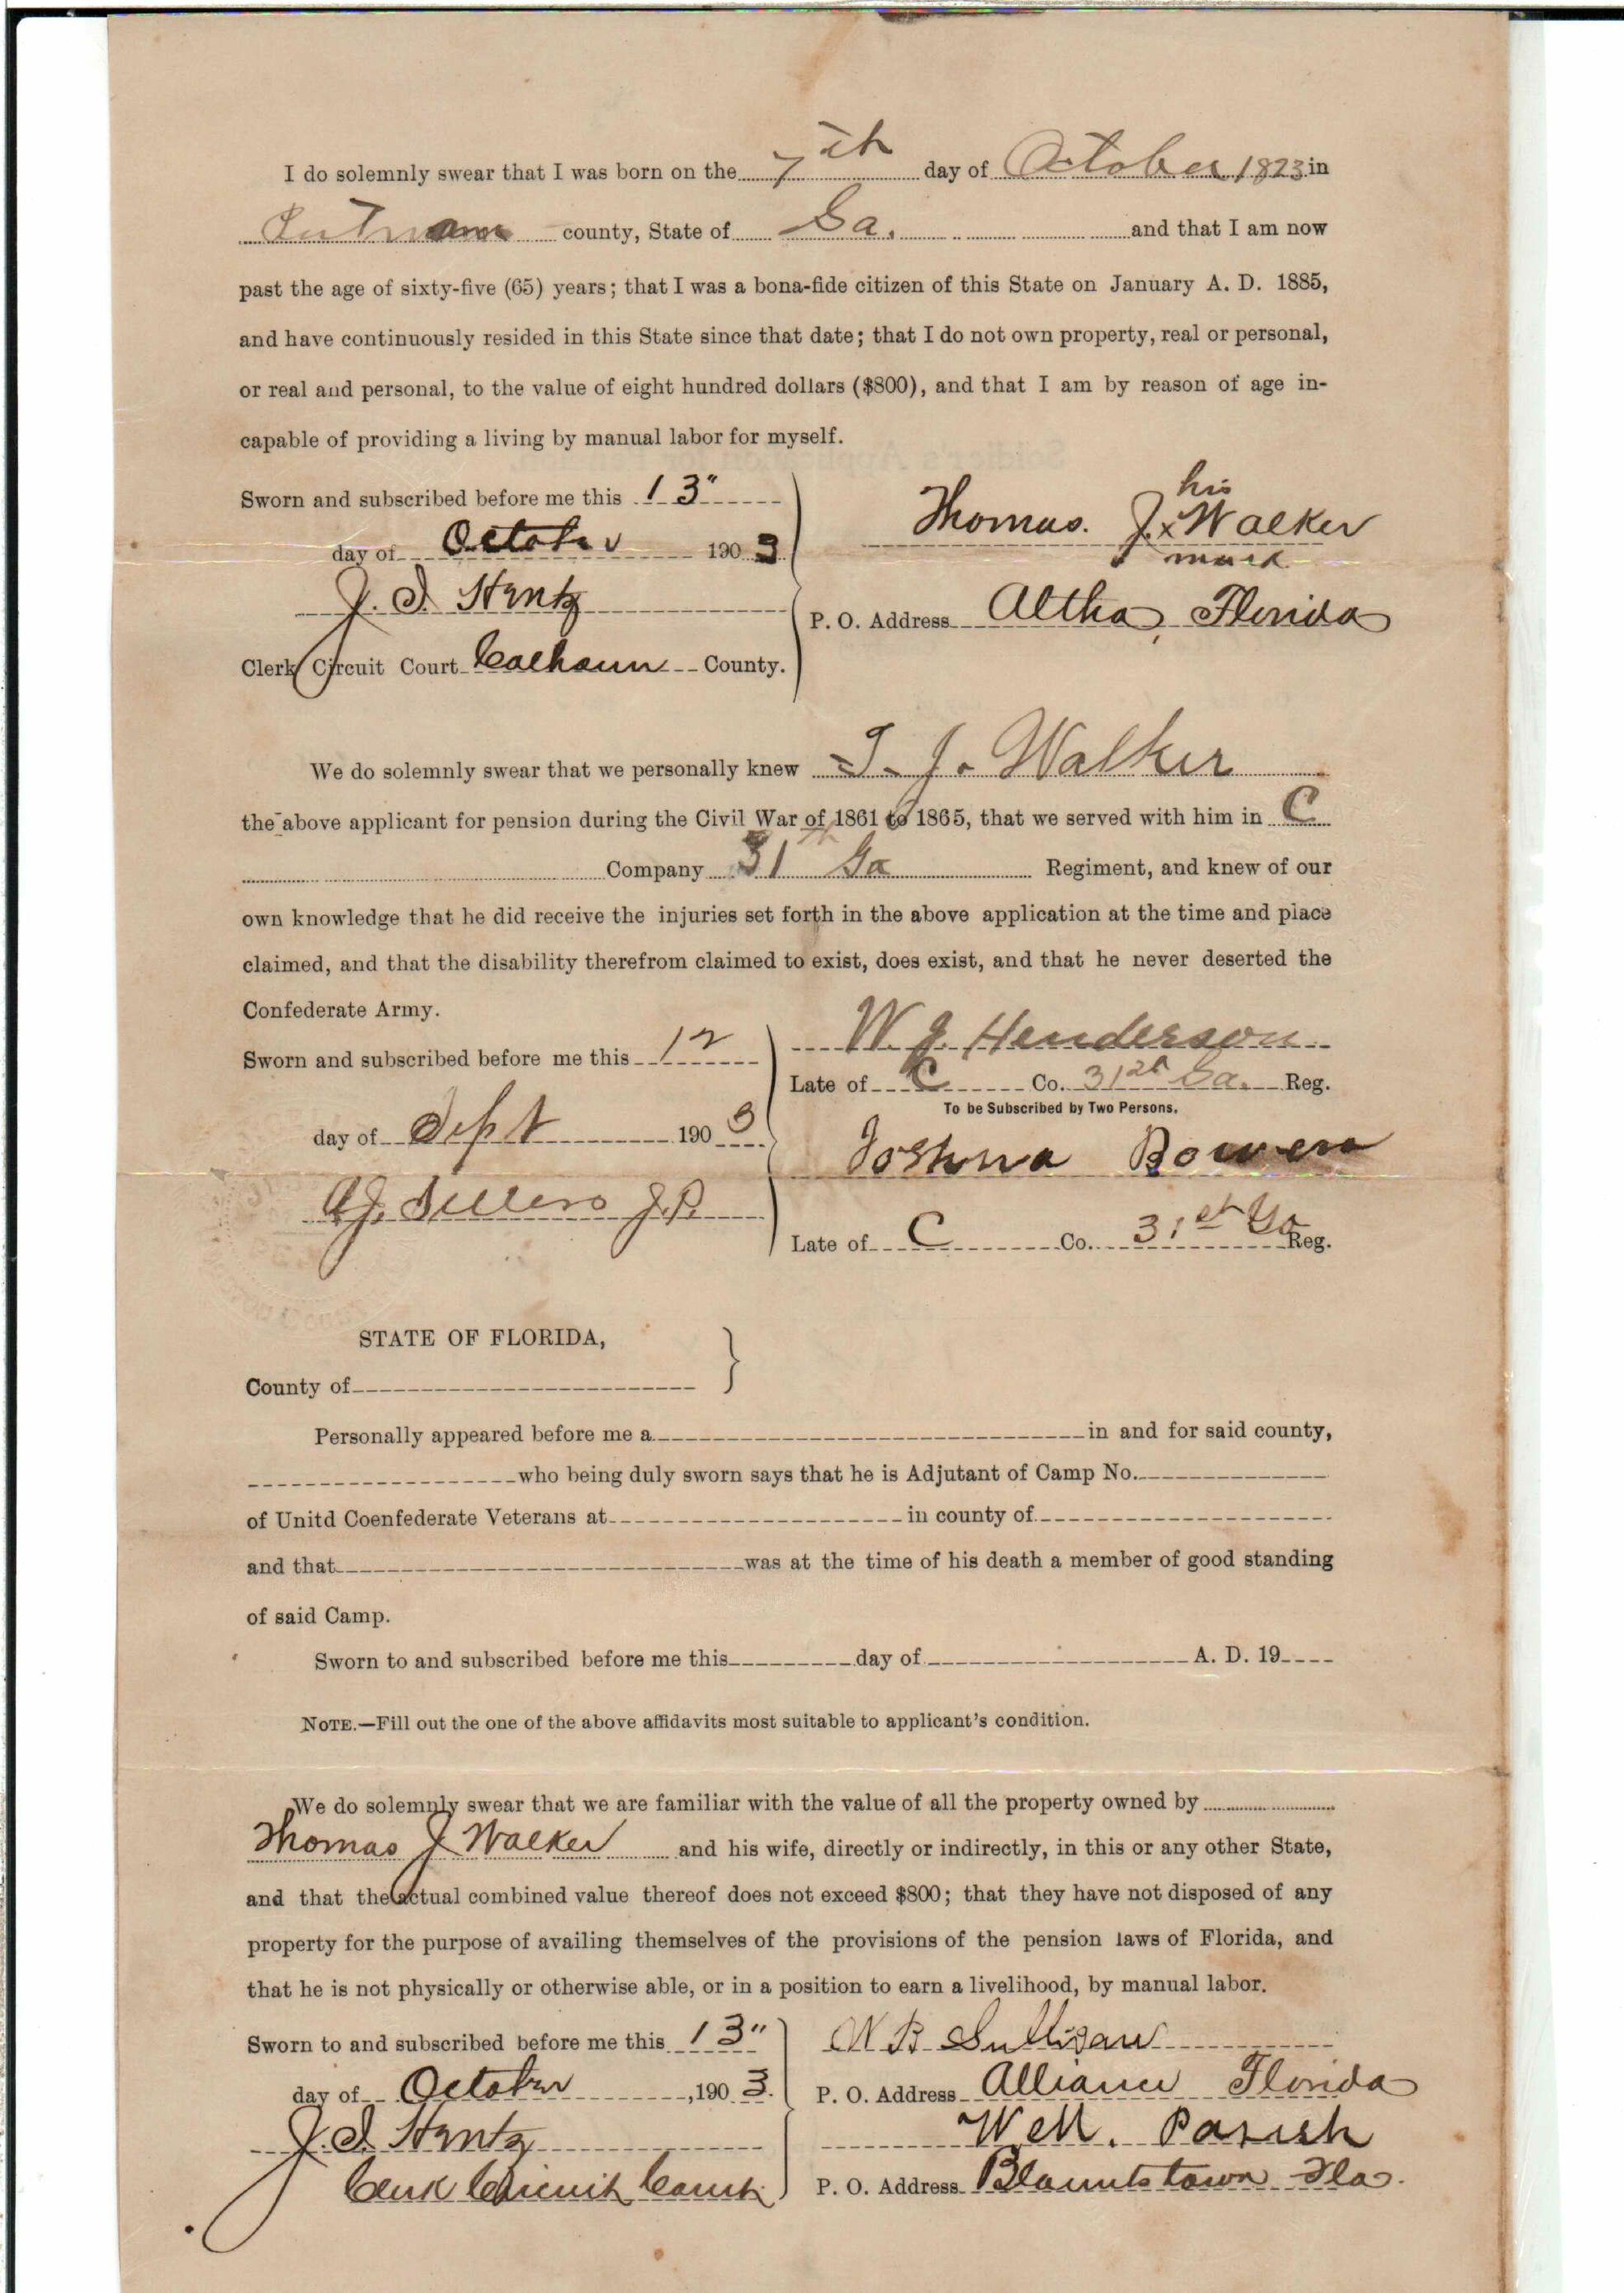 I do solemnly swear that I was born on the 7th day of October 1823 in
Putnam county, State of Ga. and that I am now
past the age of sixty-five (65) years; that I was a bona-fide citizen of this State on January A. D. 1885,
and have continuously resided in this State since that date; that I do not own property, real or personal,
or real and personal, to the value of eight hundred dollars ($800), and that I am by reason of age in-
capable of providing a living by manual labor for myself.
Sworn and subscribed before me this 13"
day of October 1903
his
Thomas. J. x Walker
mark
J. I. Hentz
P. O. Address Altha, Florida
Clerk Circuit Court Calhoun County.
We do solemnly swear that we personally knew T. J. Walker
the above applicant for pension during the Civil War of 1861 to 1865, that we served with him in C
Company 31st Ga Regiment, and knew of our
own knowledge that he did receive the injuries set forth in the above application at the time and place
claimed, and that the disability therefrom claimed to exist, does exist, and that he never deserted the
Confederate Army.
Sworn and subscribed before me this 12
day of Sept 1903
A. J. Sellers J.P.
W. J. Henderson
Late of C Co. 31st Ga. Reg.
To be Subscribed by Two Persons.
Joshua Bowen
Late of C Co. 31st Ga Reg.
STATE OF FLORIDA,
County of
Personally appeared before me a in and for said county,
who being duly sworn says that he is Adjutant of Camp No.
of Unitd Coenfederate Veterans at in county of
and that was at the time of his death a member of good standing
of said Camp.
Sworn to and subscribed before me this day of A. D. 19
NOTE.—Fill out the one of the above affidavits most suitable to applicant's condition.
We do solemnly swear that we are familiar with the value of all the property owned by
Thomas J Walker and his wife, directly or indirectly, in this or any other State,
and that the actual combined value thereof does not exceed $800; that they have not disposed of any
property for the purpose of availing themselves of the provisions of the pension laws of Florida, and
that he is not physically or otherwise able, or in a position to earn a livelihood, by manual labor.
Sworn to and subscribed before me this 13"
day of October, 1903.
J. I. Hentz
Clerk Circuit Court
W B Sullivan
P. O. Address Alliance Florida
Parish
P. O. Address Blountstown Fla.